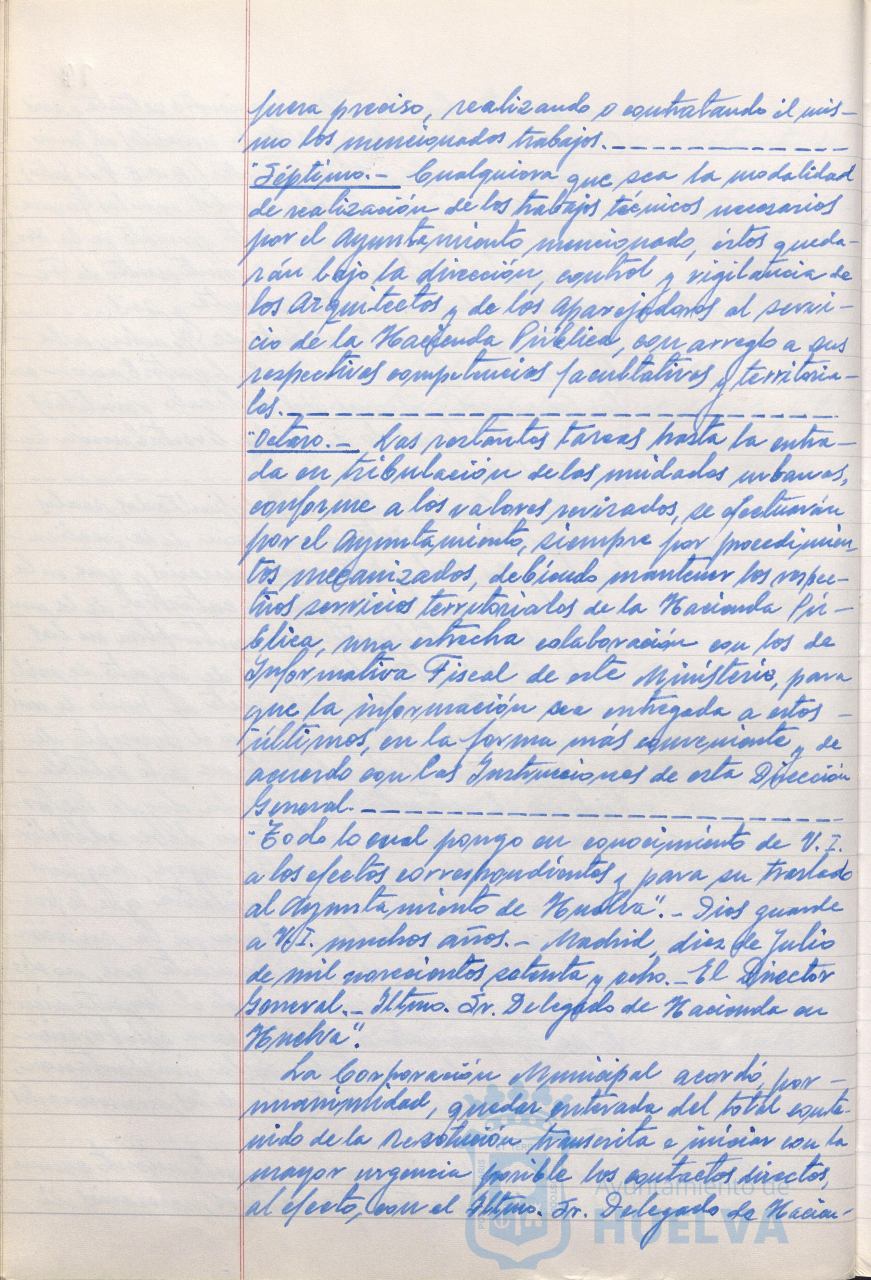 fuera preciso, realizando o contratando él mis-
mo los mencionados trabajos.
"Séptimo.- Cualquiera que sea la modalidad
de realización de los trabajos técnicos necesarios
por el Ayuntamiento mencionado, éstos queda-
rán bajo la dirección, control y vigilancia de
los Arquitectos y de los Aparejadores al servi-
cio de la Hacienda Pública, con arreglo a sus
respectivas competencias facultativas y territoria-
les.
"Octavo.- Las restantes tareas hasta la entra-
da en tributación de las unidades urbanas,
conforme a los valores revisados, se efectuarán
por el Ayuntamiento, siempre por procedimien-
tos mecanizados, debiendo mantener los respec-
tivos servicios territoriales de la Hacienda Pú-
blica, una estrecha colaboración con los de
Informativa Fiscal de este Ministerio, para
que la información sea entregada a estos -
últimos, en la forma más conveniente y de
acuerdo con las Instrucciones de esta Dirección
General.
"Todo lo cual pongo en conocimiento de V.I.
a los efectos correspondientes y para su traslado
al Ayuntamiento de Huelva".- Dios guarde
a V.I. muchos años.- Madrid, diez de Julio
de mil novecientos setenta y ocho.- El Director
General.- Iltmo. Sr. Delegado de Hacienda en
Huelva".
La Corporación Municipal acordó, por -
unanimidad, quedar enterada del total conte-
nido de la Resolución transcrita e iniciar con la
mayor urgencia posible los contactos directos,
al efecto, con el Iltmo. Sr. Delegado de Hacien-
Ayuntamiento de
HUELVA